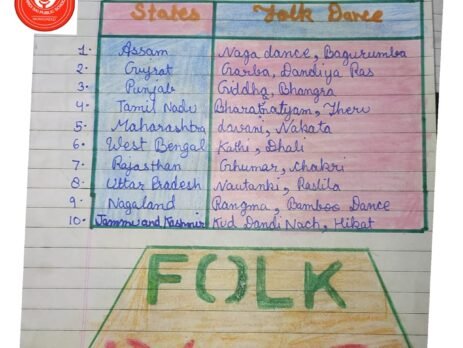 States Folk Dance
1. Assam Naga dance, Bagurumba
2. Gujrat Garba, Dandiya Ras
3. Punjab Giddha, Bhangra
4. Tamil Nadu Bharatnatyam, Theru
5. Maharashtra Lavani, Nakata
6. West Bengal Kathi, Dhali
7. Rajasthan Ghumar, Chakri
8. Uttar Pradesh Nautanki, Raslila
9. Nagaland Rangma, Bamboo Dance
10. Jammu and Kashmir Kud Dandi Nach, Hikat
FOLK